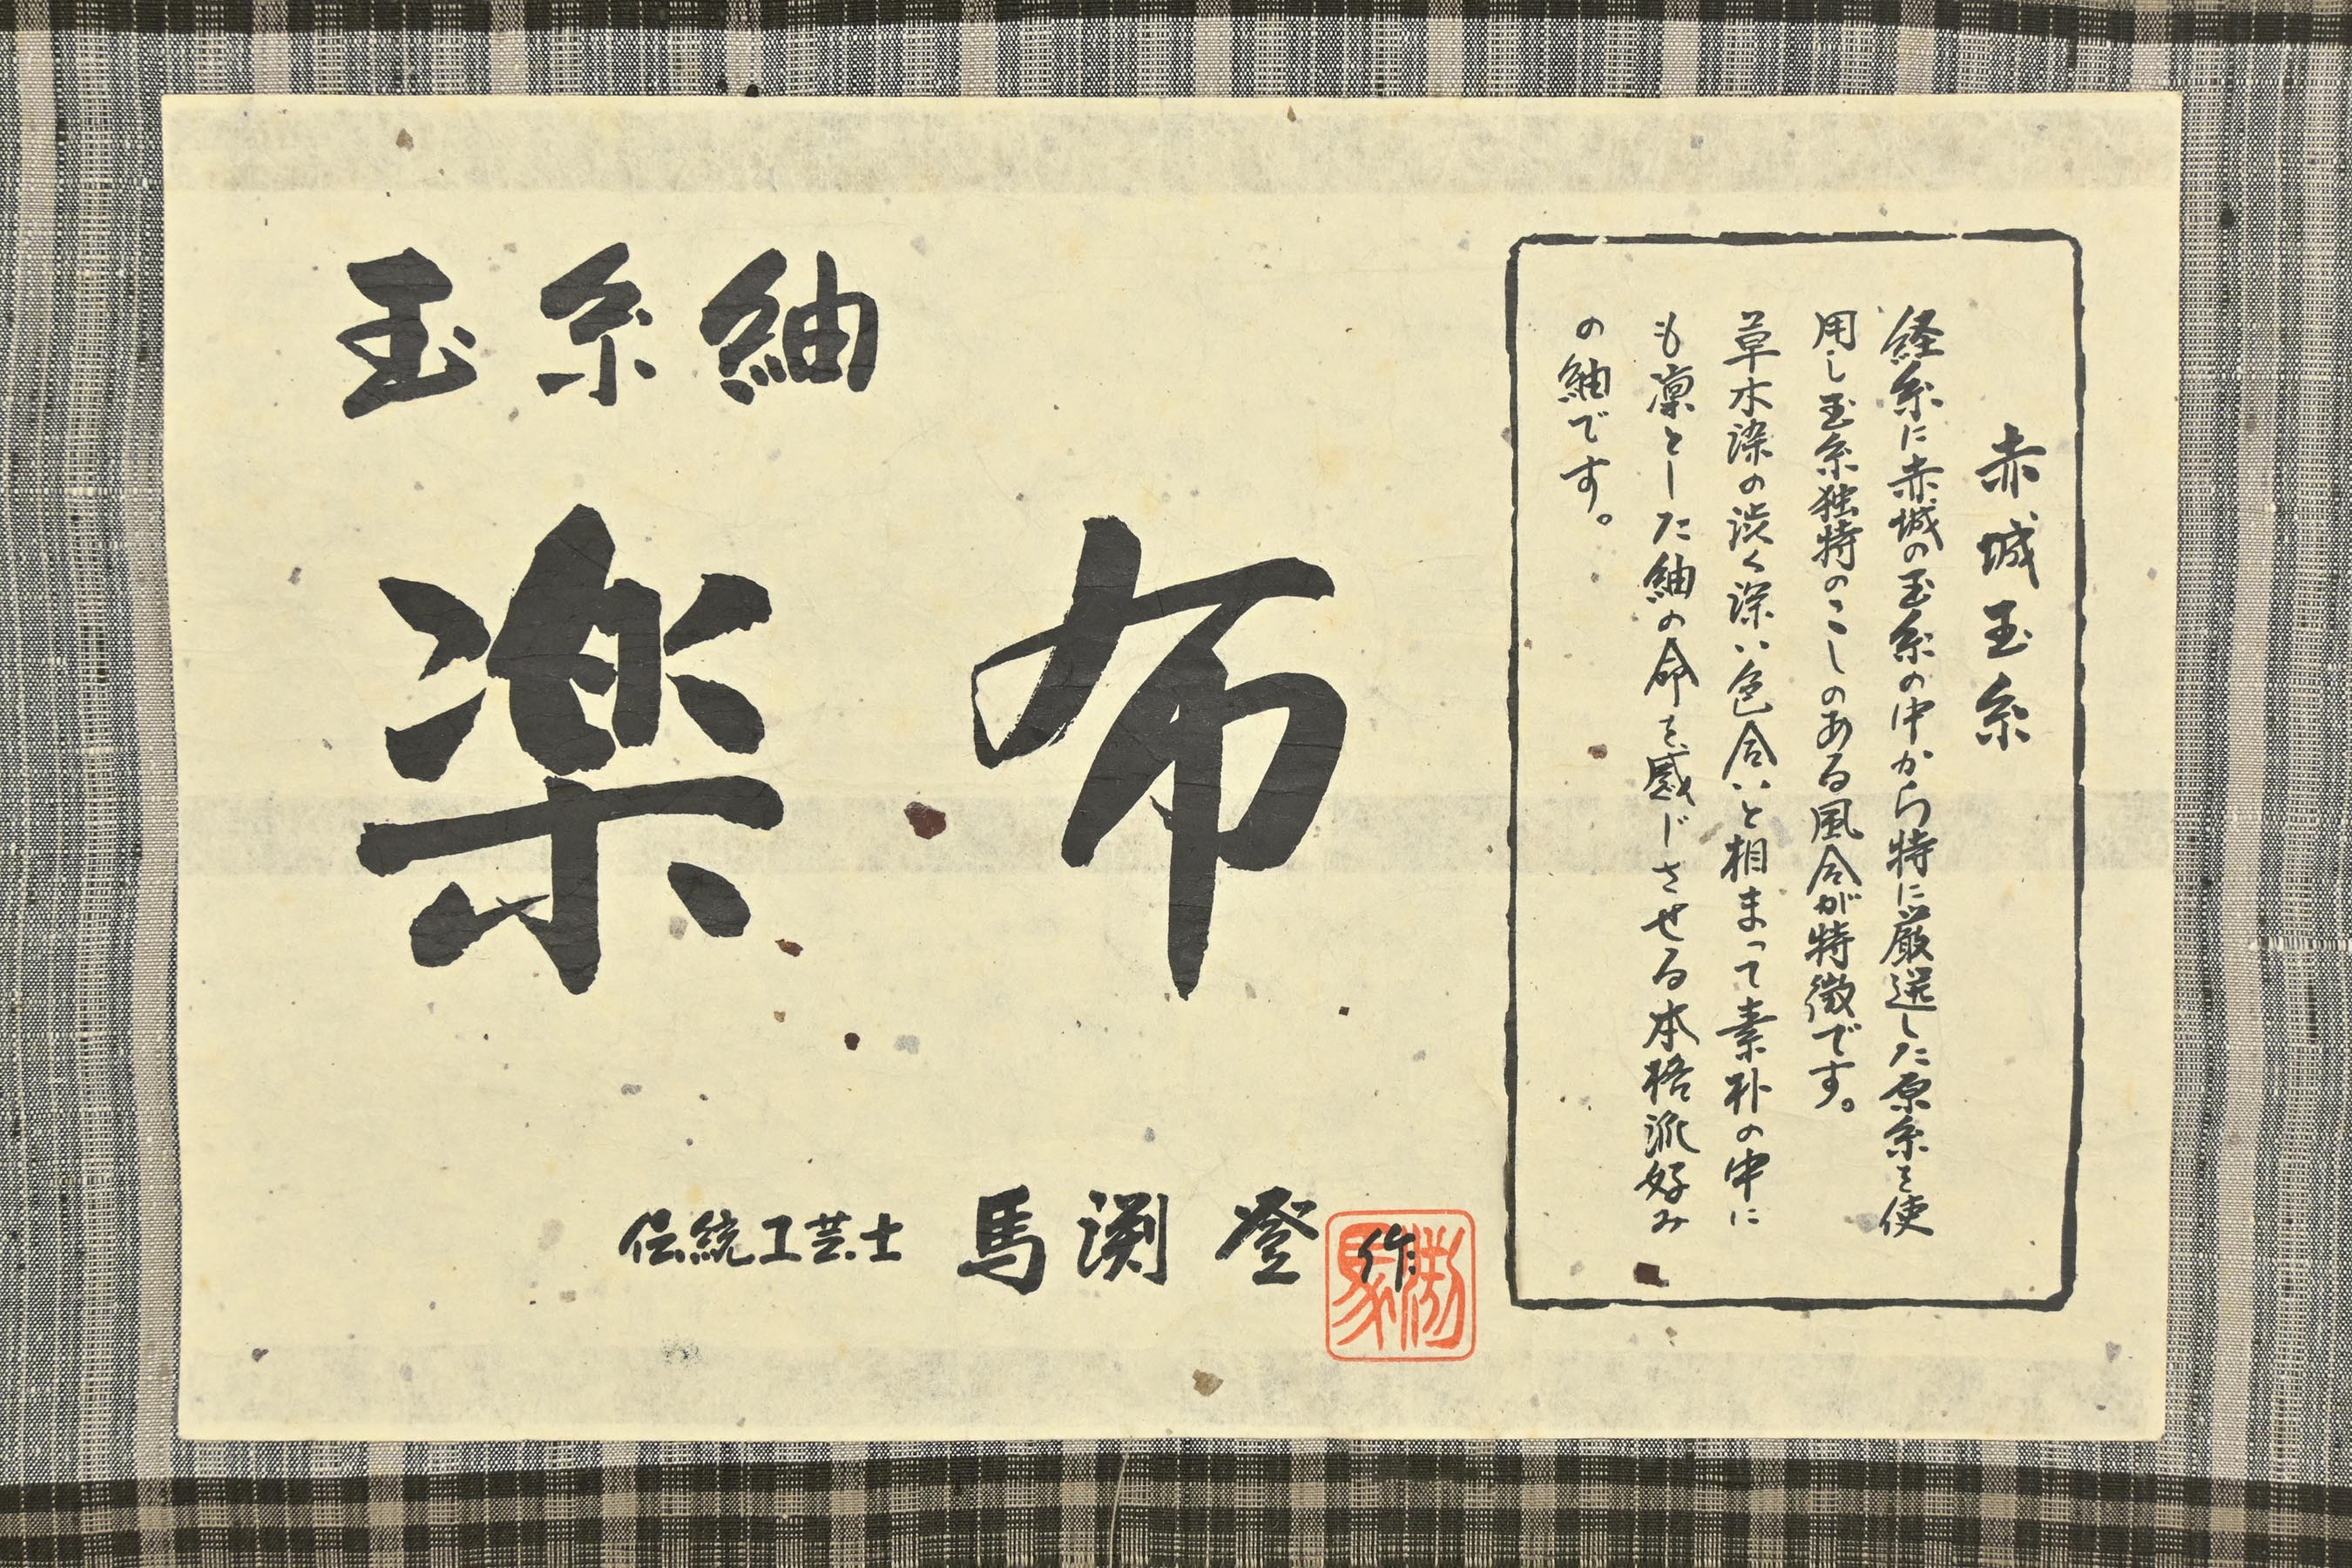 赤城玉糸
経糸に赤城の玉糸の中から特に厳選した原糸を使
用し玉糸独特のこしのある風合が特徴です。
草木染の渋く深い色合いと相まって素朴の中に
も凛とした紬の命を感じさせる本格派好み
の紬です。
玉糸紬
楽布
伝統工芸士 馬渕 登 作
馬渕